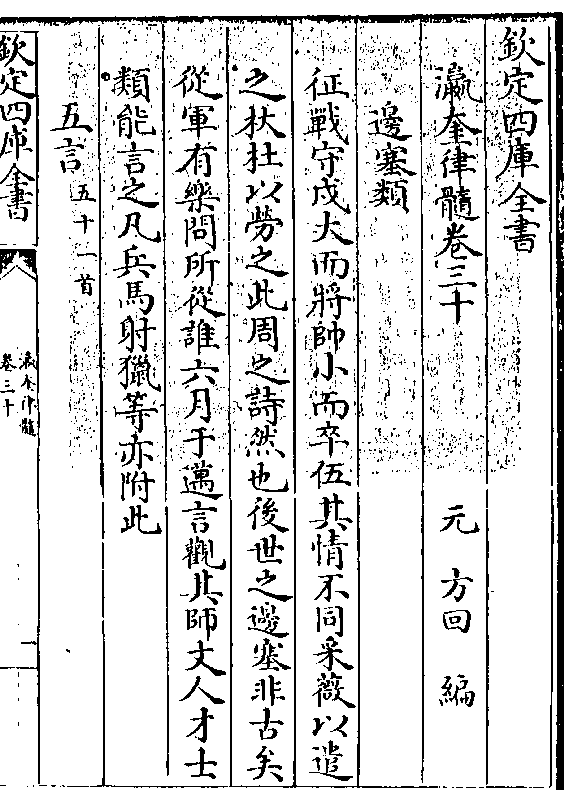 欽定四庫全書
瀛奎律髓卷三十
元 方回 編
邊塞類
征戰守戍大而將帥小而卒伍其情不同采薇以遣
之杕杜以勞之此周之詩然也後世之邊塞非古矣
從軍有樂問所從誰六月于邁言觀其師文人才士
類能言之凡兵馬射獵等亦附此
五言五十一首
欽定四庫全書
瀛奎律髓
卷三十
一